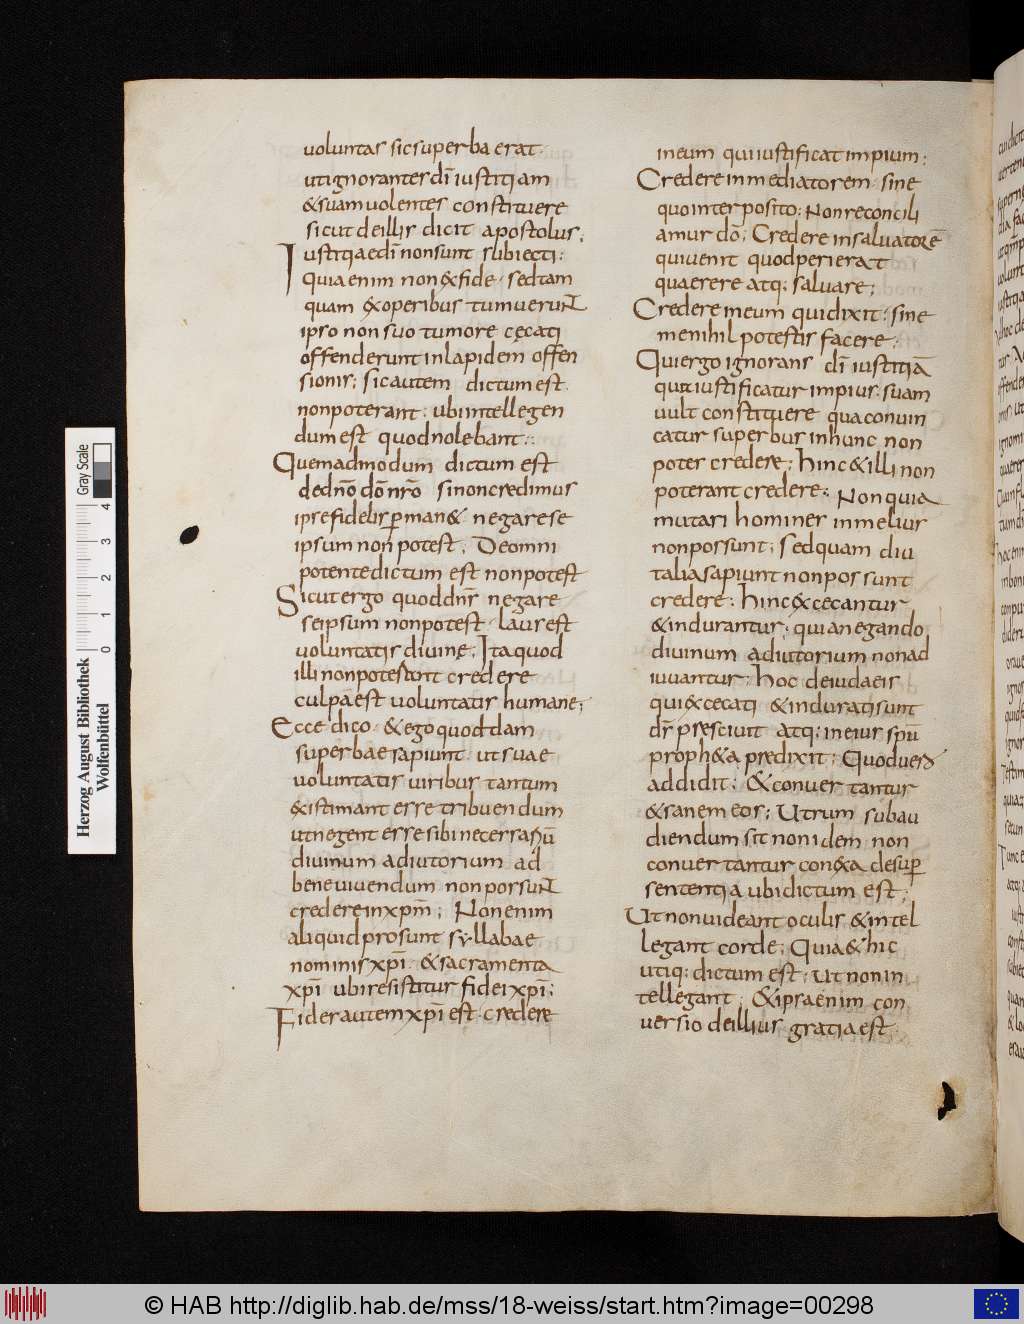 uoluntas sicsuperba erat.
utignorantesdi̅ iustitiam
&suamuolentes constituere
sicut deillis dicit apostolus;
Iustitiaedi̅ nonsunt subiecti:
quiaenim nonexfide · sedtam
quam exoperibus tumuerunt
ipso nonsuo tumore cęcati
offenderunt inlapidem offen
sionis; sicautem dictum est
nonpoterant · ubi intellegen
dum est quodnolebant:
Quemadmodum dictum est
dedn̅o do̅ nr̅o sinoncredimus
ipsefidelis permanet negarese
ipsum non potest; Deomni
potentedictum est nonpotest
Sicutergo quoddn̅s negare
seipsum nonpotest · laus est
uoluntatis diuinę; Itaquod
illi nonpoterant credere
culpa̅ est uoluntatis humanę;
Ecce dico · &ego quosdam
superbaesapiunt · ut suae
uoluntatis uiribus tantum
existimant esse tribuendum
utnegent esse sibi necessariu̅
diuinum adiutorium ad
beneuiuendum non possunt
credereinxpm̅; Non enim
aliquidprosunt syllabae
nominis xpi̅ · &sacramenta
xpi̅ ubiresistitur fidei xpi̅;
Fides autem xpi̅ est · credere
ineum qui iustificat impium;
Credere inmediatorem · sine
quo interposito; Nonreconcili
amur do̅; Credere insaluatore̅
quiuenit quodperierat
quaerere atq; saluare;
Credere ineum quidixit; sine
me nihil potestis facere;
Qui ergo ignorans di̅ iustitia̅
qua iustificatur impius · suam
uult constituere qua conuin
catur superbus inhunc non
potes credere; hinc&illi non
poterant credere; Nonquia
mutari homines inmelius
nonpossunt; sedquam diu
taliasapiunt nonpossunt
credere; hinc excecantur
&indurantur; quianegando
diuinum adiutorium nonad
iuuantur; hoc deiudaeis
quiexcecati &induratisunt
ds̅ presciuit atq; ineius spu̅
propheta predixit; Quoduero
addidit; &conuertantur
&sanem eos; Utrum subau
diendum sit non idem non
conuertantur conexa desuper
sententia ubidictum est;
Ut nonuideant oculis &intel
legant corde; Quia&hic
utiq; dictum est; ut non in
tellegant · &ipsaenim con
uersio deillius gratia est
Herzog August Bibliothek
Wolfenbüttel
0 1 2 3 4
Gray Scale
© HAB http://diglib.hab.de/mss/18-weiss/start.htm?image=00298